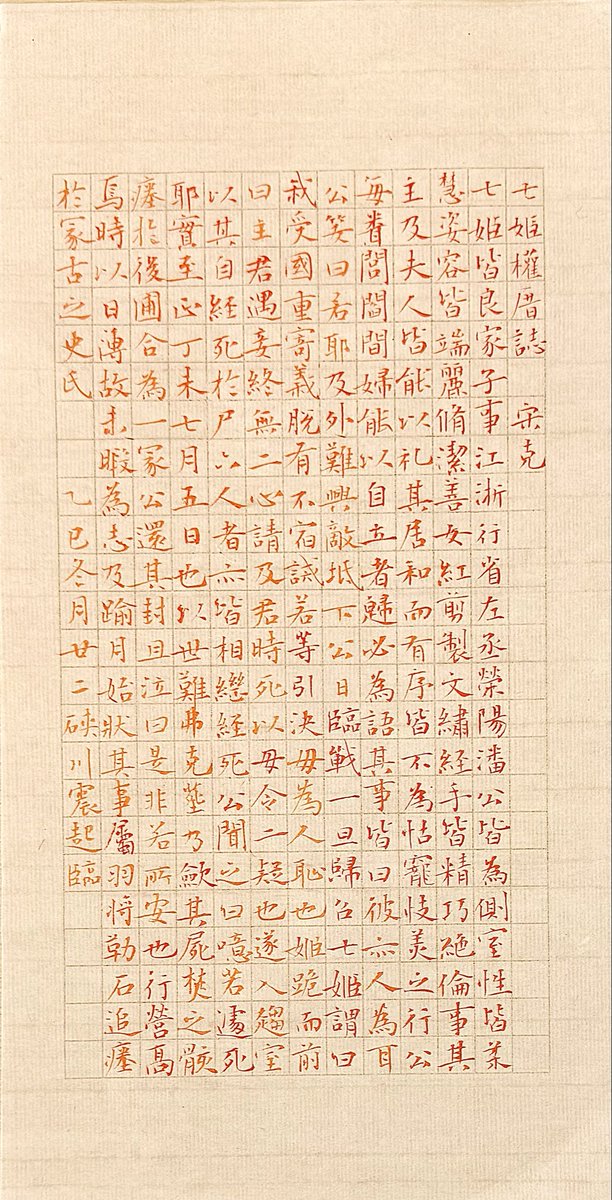 七姬權厝誌 宋克
七姬皆良家子事江浙行省左丞榮陽潘公皆為側室性皆柔
慧姿容皆端麗脩潔善女紅剪製文繡經手皆精巧絶倫事其
主及夫人皆能以礼其居和而有序皆不為怙寵忮美之行公
每眷閭閻間婦能以自立者歸必為語其事皆曰彼亦人為耳
公笑曰若耶及外難興敵坻下公日臨戰一旦歸召七姬謂曰
我受國重寄義脱有不宿誡若等引決毋為人恥也姬跪而前
曰主君遇妾終無二心請及君時死以毋令二疑也遂入趨室
以其自經死於尸六人者亦皆相繼經死公聞之曰噫若遽死
耶實至正丁未七月五日也以世難弗克塟乃歛其屍焚之骸
瘞於後圃合為一冢公還其封且泣曰是非若所安也行營高
焉時以日溥故未暇為志及踰月始狀其事屬羽將勒石追瘞
於冢古之史氏 乙巳冬月廿二硤川震起臨